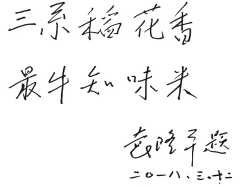 三系稻花香
最牛知味米
袁隆平题
二〇一八、三、十二